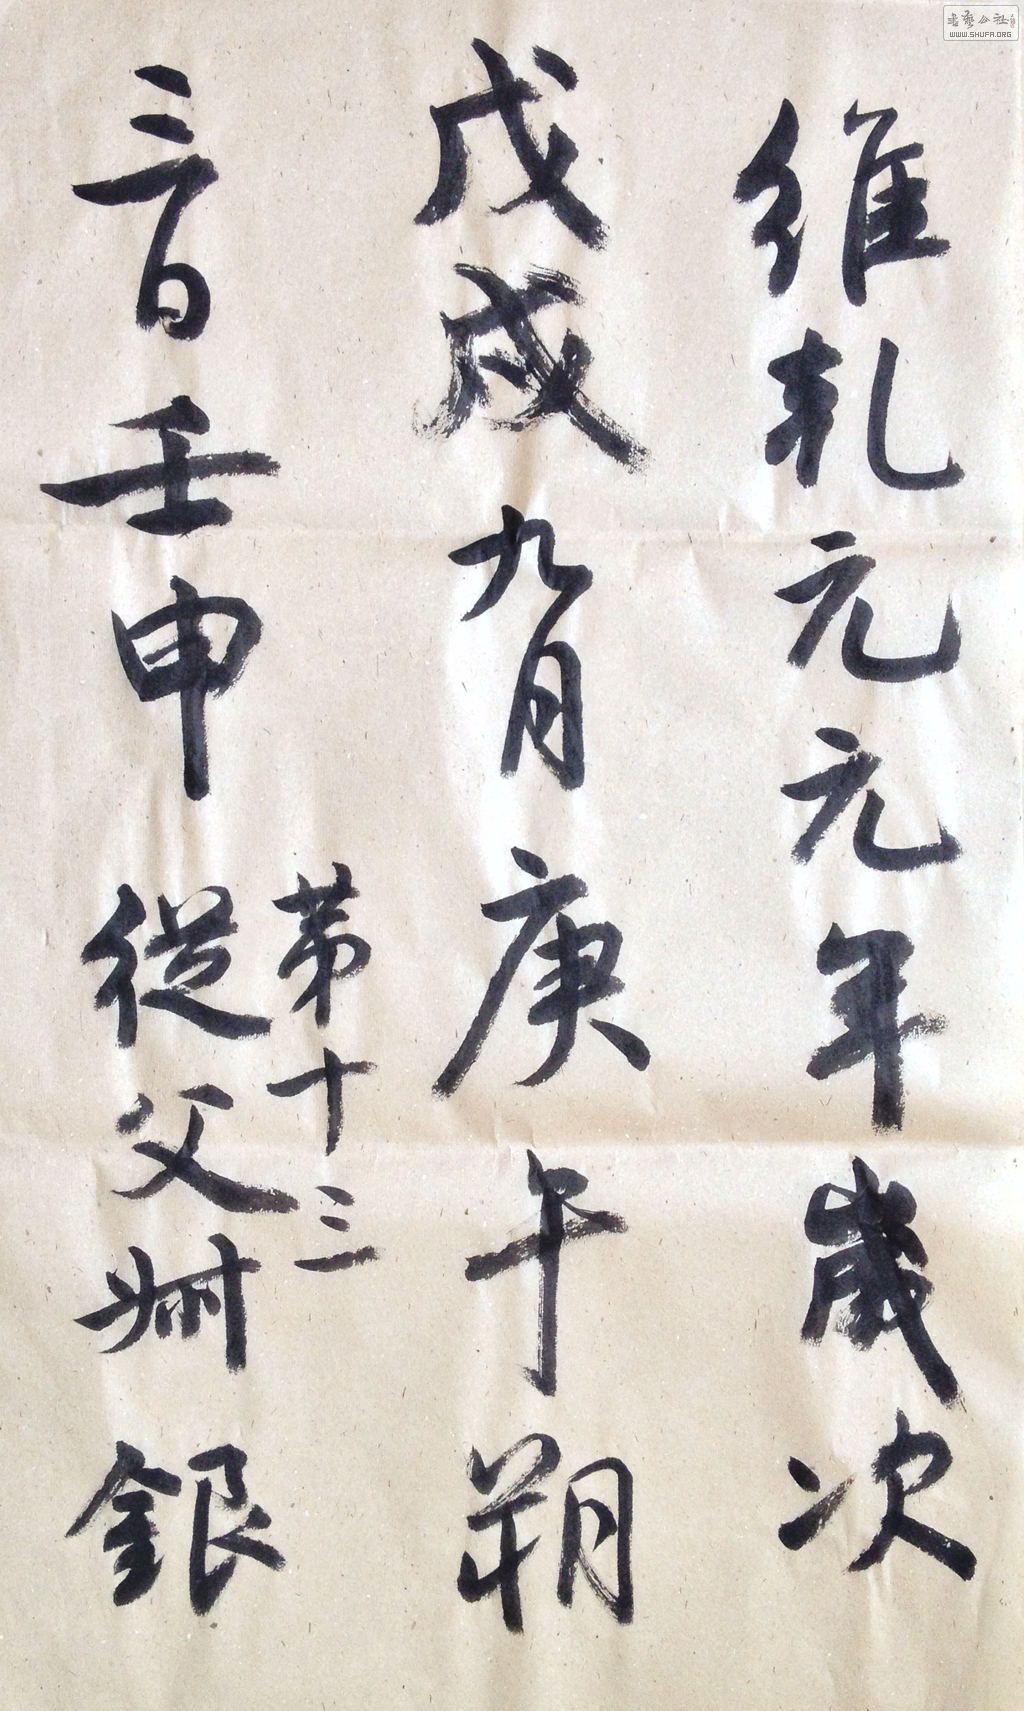 維乹元元年歲次
戊戌九月庚午朔
三日壬申
第十三
從父姉銀
書藝公社
WWW.SHUFA.ORG